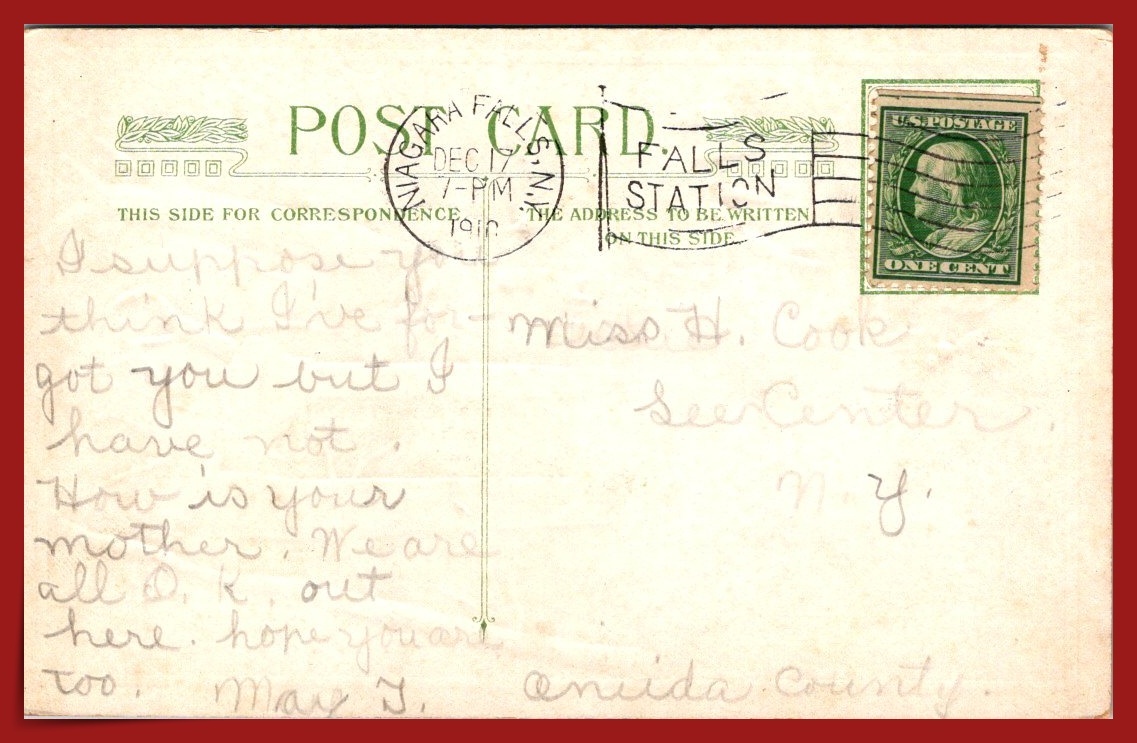 POST CARD.
NIAGARA FALLS, N.Y.
DEC 17
7-PM
1910
FALLS
STATION
U.S. POSTAGE
ONE CENT
THIS SIDE FOR CORRESPONDENCE
THE ADDRESS TO BE WRITTEN
ON THIS SIDE
I suppose you
think I've for-
got you but I
have not.
How is your
mother. We are
all O. K. out
here. hope you are
too.
May T.
Miss H. Cook
Lee Center.
N. Y.
Oneida County.